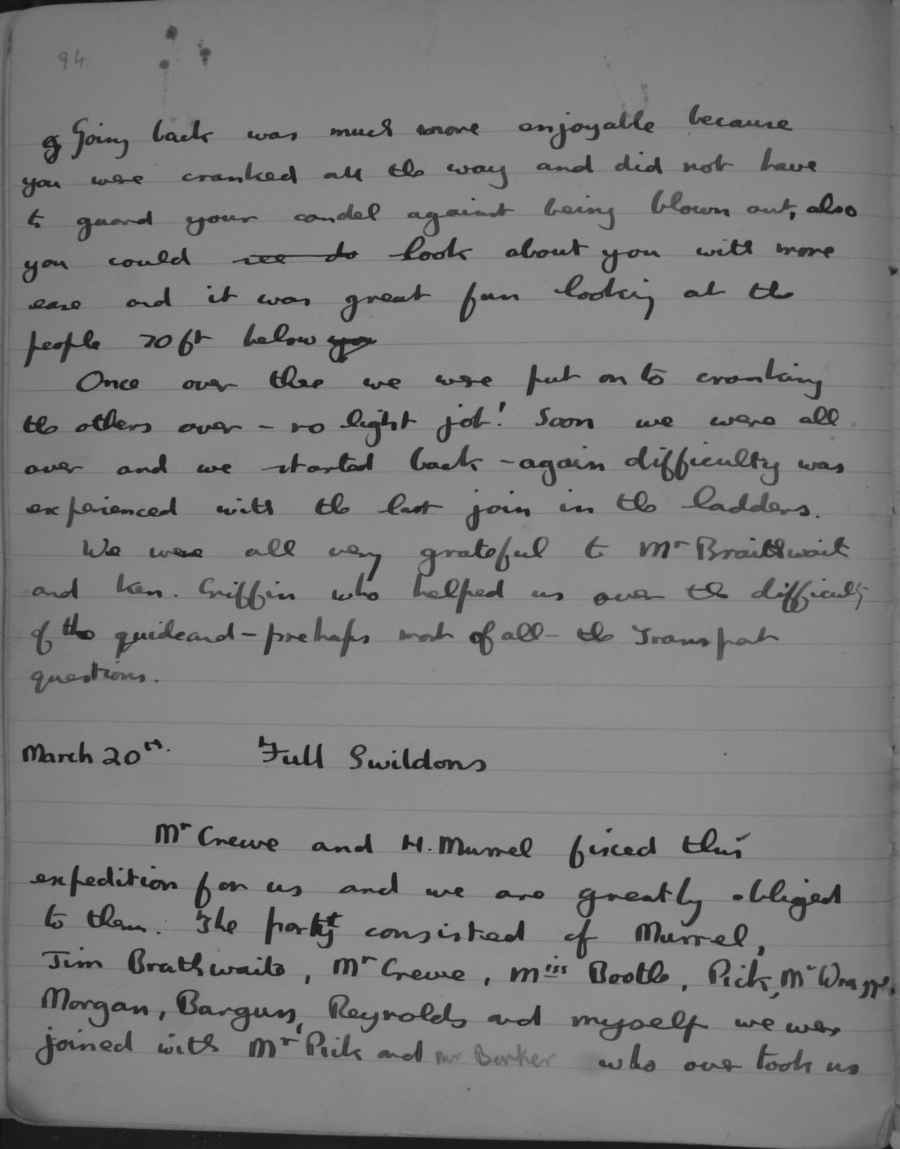 94
Going back was much more enjoyable because
you were cranked all the way and did not have
to guard your candel against being blown out, also
you could see to look about you with more
ease and it was great fun looking at the
people 70 ft below you
Once over thee we were put on to cranking
the others over - no light job! Soon we were all
over and we started back - again difficulty was
experienced with the last join in the ladders.
We were all very grateful to Mr Braithwait
and Ken. Griffin who helped us over the difficulty
of the guideand - prehaps most of all - the Transport
questions.
March 20th. Full Swildons
Mr Crewe and H. Murrel fixed this
expedition for us and we are greatly obliged
to them. The party consisted of Murrel,
Jim Brathwaite, Mr Crewe, Miss Bootle, Pick, Mr
Morgan, Bargus, Reynolds and myself we were
joined with Mr Pick and Mr Barker who over took us